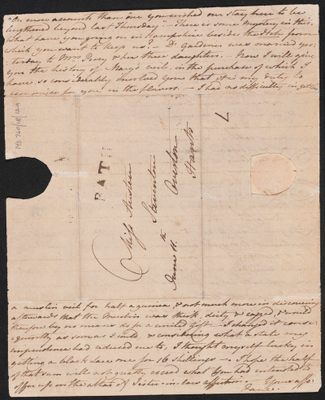 on more accounts than one you wished our stay here to be
lengthened beyond last Thursday. — There is some Mystery in this.
What have you going on in Hampshire besides the Itch from
which you want to keep us? — Dr. Gardiner was married yes:
terday to Mrs. Percy & her three daughters. Now I will give
you the history of Mary's veil, in the purchase of which I
have so considerably involved you that it is my duty to
economise for you in the flowers. — I had no difficulty in getting
BATH
7
Miss Austen
Steventon
Overton
Hants
June 11th
a muslin veil for half a guinea, & not much more in discovering
afterwards that the Muslin was thick, dirty & ragged, & would
therefore by no means do for a united Gift. — I changed it conse:
quently as soon as I could, & considering what a state my
imprudence had reduced me to, I thought myself lucky in
getting a black lace one for 16 shillings —. I hope the half
of that sum will not greatly exceed what You had intended to
offer up on the altar of Sister-in-law affection.
Yours affec:
Jane.